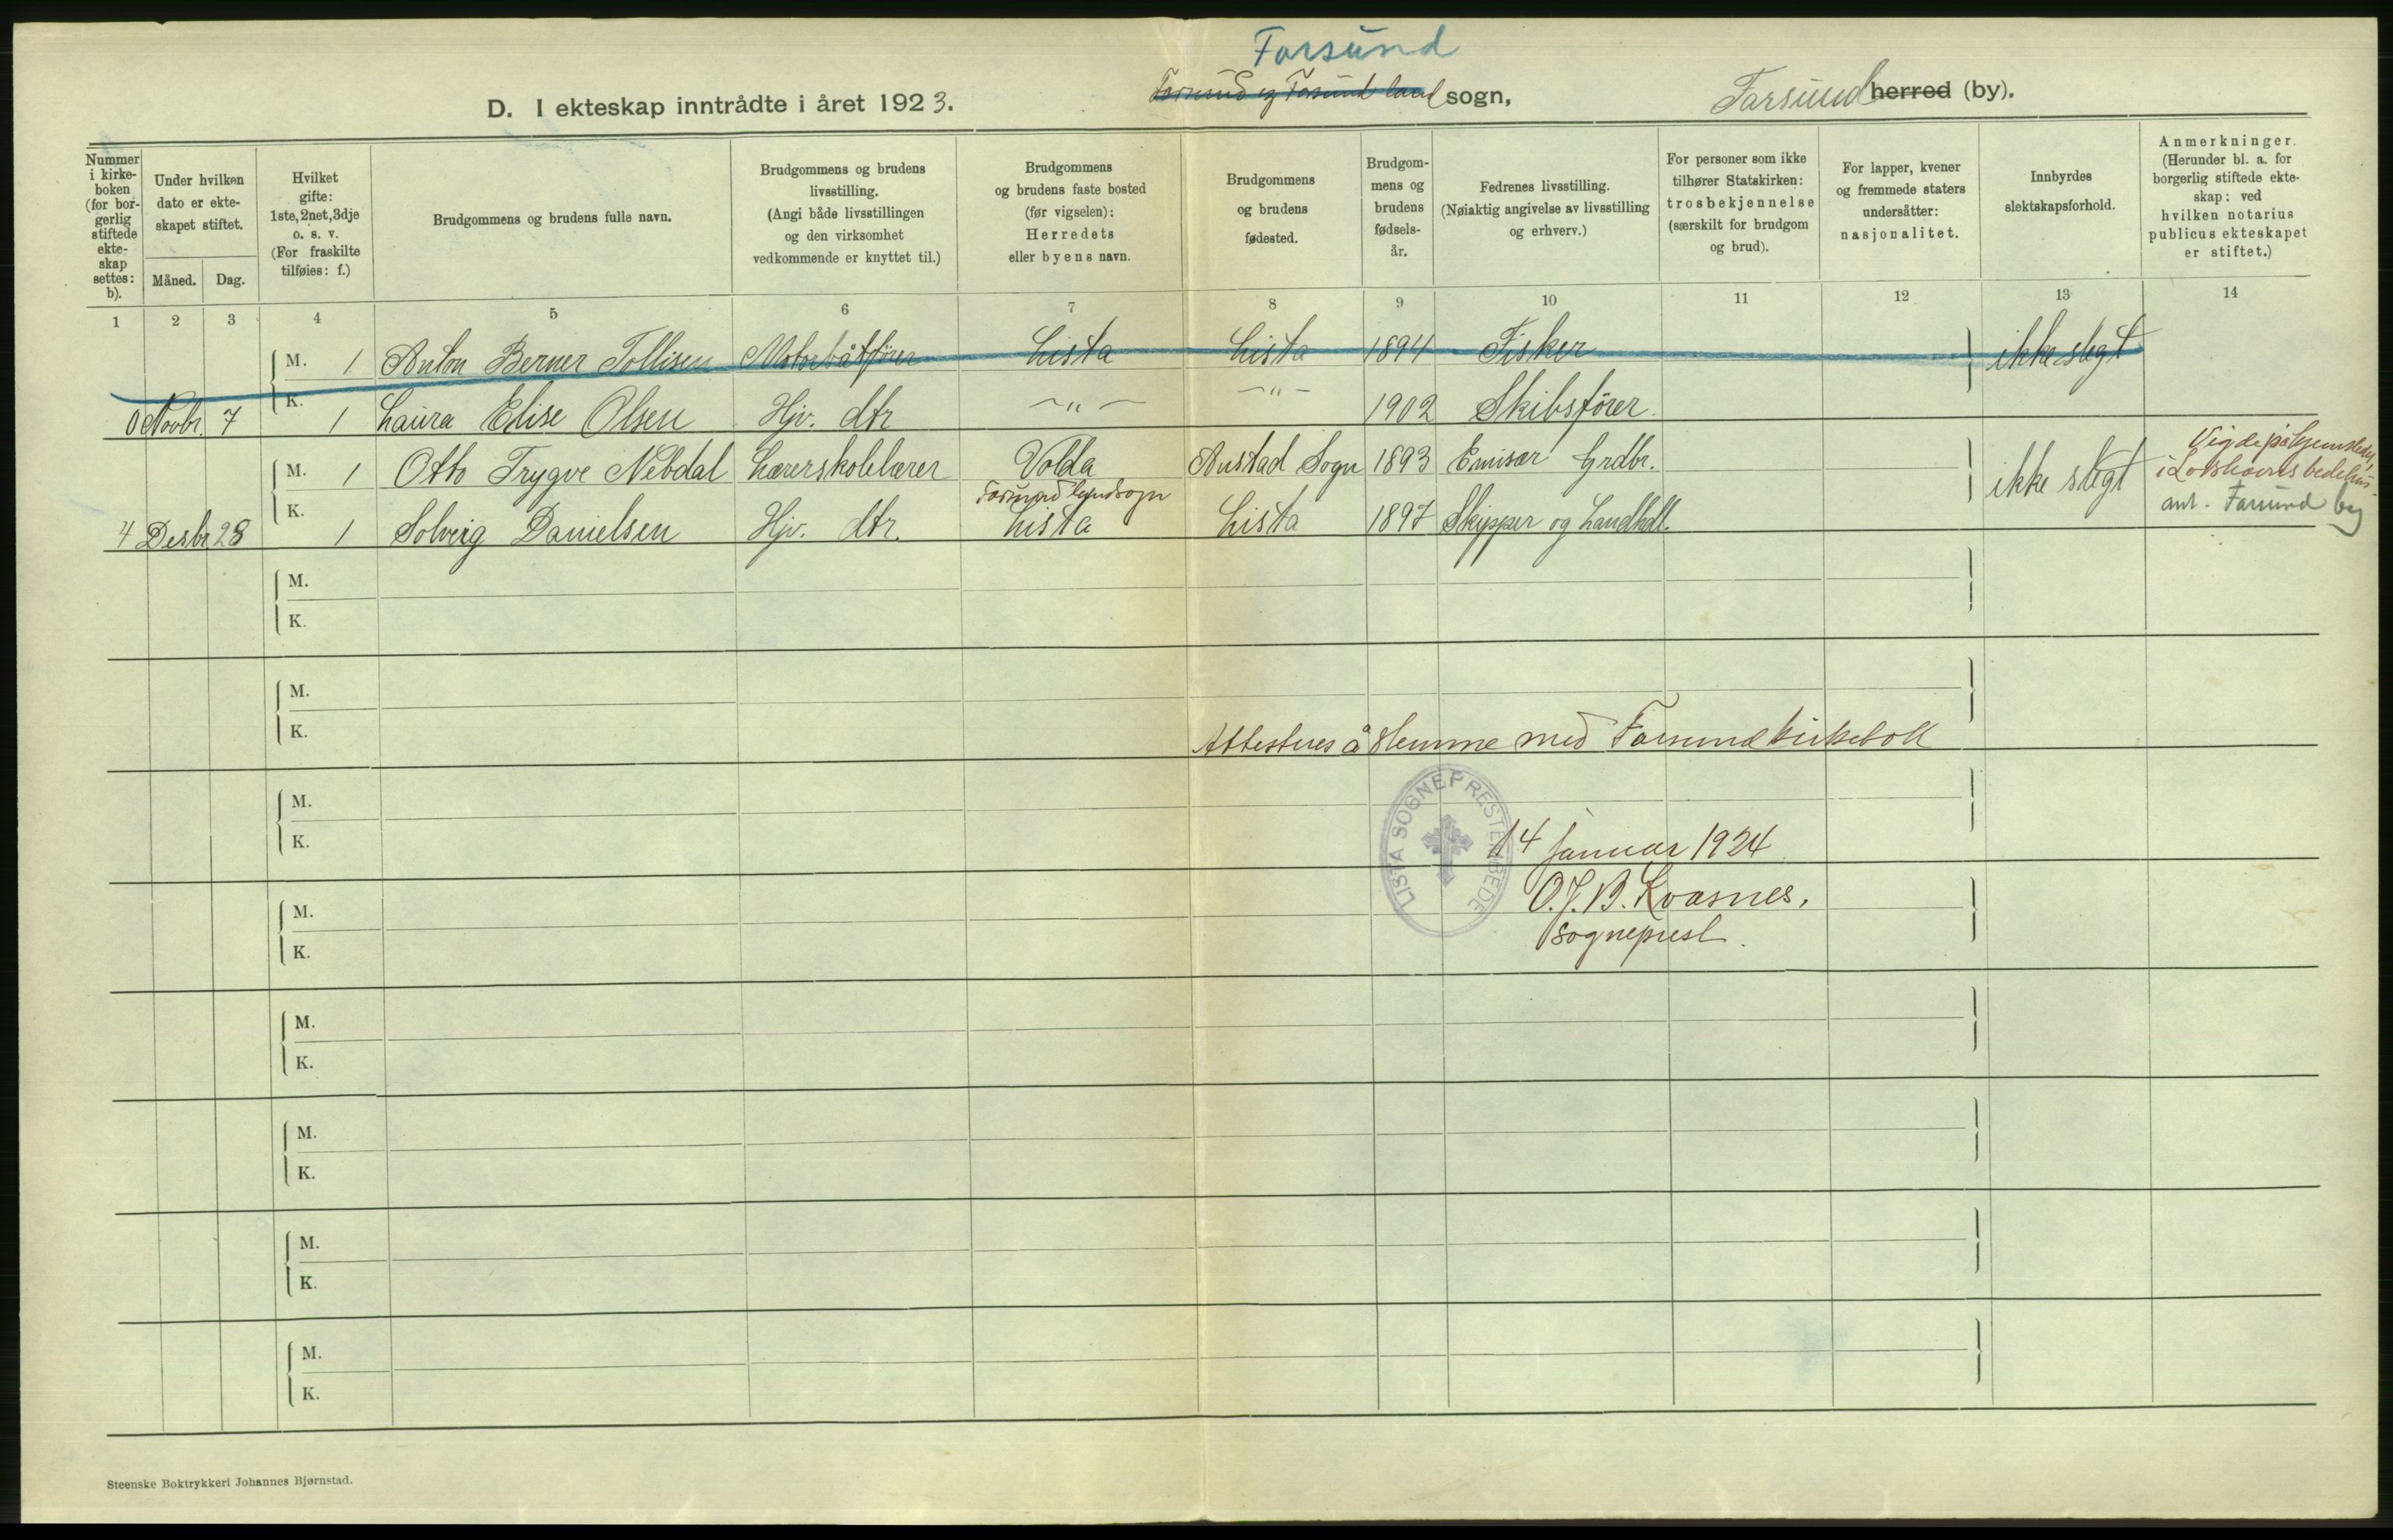 Farsund
D. I ekteskap inntrådte i året 1923. Farsund og Farsund land sogn, Farsund herred (by).
Nummer i kirke-boken (for bor-gerlig stiftede ekte-skap settes: b).
Under hvilken dato er ekte-skapet stiftet.
Måned. Dag.
Hvilket gifte: 1ste, 2net, 3dje o. s. v. (For fraskilte tilføies: f.)
Brudgommens og brudens fulle navn.
Brudgommens og brudens livsstilling. (Angi både livsstillingen og den virksomhet vedkommende er knyttet til.)
Brudgommens og brudens faste bosted (før vigselen): Herredets eller byens navn.
Brudgommens og brudens fødested.
Brudgom-mens og brudens fødsels-år.
Fedrenes livsstilling. (Nøiaktig angivelse av livsstilling og erhverv.)
For personer som ikke tilhører Statskirken: trosbekjennelse (særskilt for brudgom og brud).
For lapper, kvener og fremmede staters undersåtter: nasjonalitet.
Innbyrdes slektskapsforhold.
Anmerkninger. (Herunder bl. a. for borgerlig stiftede ekte-skap: ved hvilken notarius publicus ekteskapet er stiftet.)
1 2 3 4 5 6 7 8 9 10 11 12 13 14
M. 1 Anton Berner Tollisen Motorbåtfører Lista Lista 1894 Fisker ikke slegt
0 Novbr. 7 K. 1 Laura Elise Olsen Hjv. dtr —"— —"— 1902 Skibsfører.
M. 1 Otto Trygve Nebdal Lærerskolelærer Volda Austad Sogn 1893 Emisær Grdbr. ikke slegt
Farsund landsogn
4 Desbr 28 K. 1 Solveig Danielsen Hjv. dtr. Lista Lista 1897 Skipper og Landhdl.
i Loshavns bedehus.
Farsund by
M.
K.
M.
K.
Attesteres å stemme med Farsund kirkebok
M.
K.
LISTA SOGNEPRESTEMBEDE
14 januar 1924
O. J. B. Kvasnes,
sogneprest.
M.
K.
M.
K.
M.
K.
M.
K.
M.
K.
Steenske Boktrykkeri Johannes Bjørnstad.